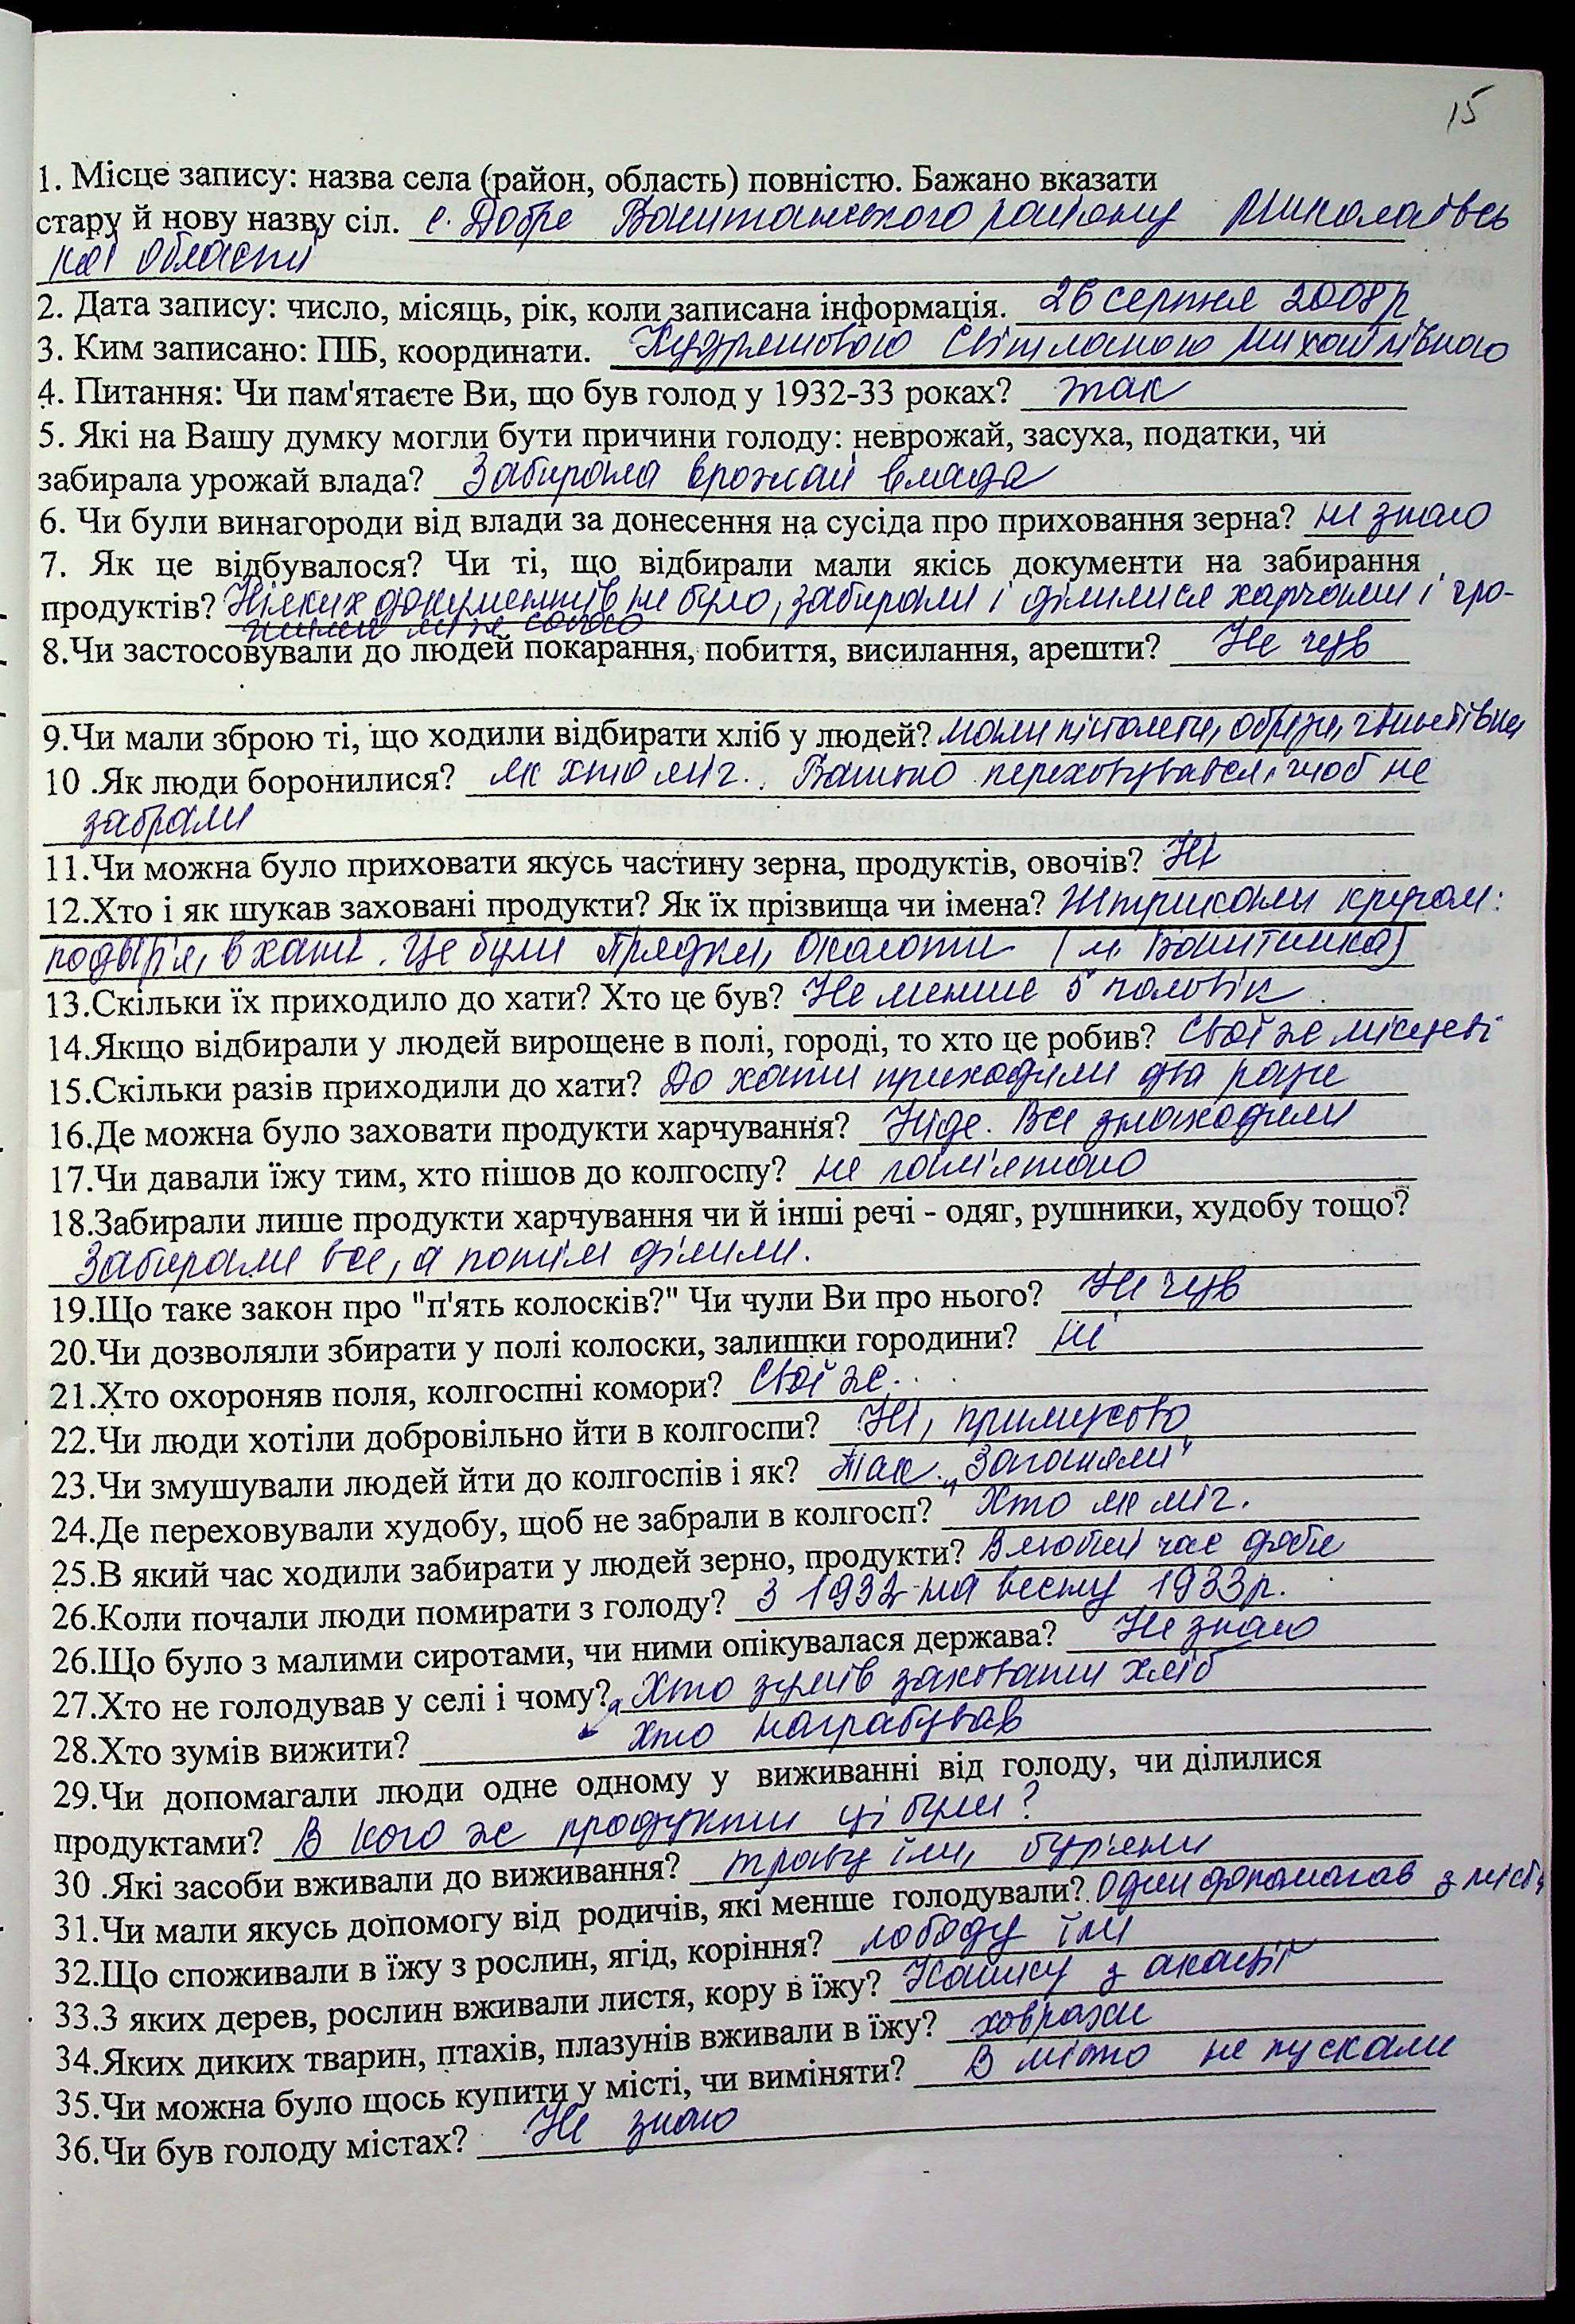 15
1. Місце запису: назва села (район, область) повністю. Бажано вказати
стару й нову назву сіл. с. Добре Баштанського району Миколаївсь
кої області
2. Дата запису: число, місяць, рік, коли записана інформація. 26 серпня 2008р.
3. Ким записано: ПІБ, координати. Кудряшовою Світланою Михайлівною
4. Питання: Чи пам'ятаєте Ви, що був голод у 1932-33 роках? так
5. Які на Вашу думку могли бути причини голоду: неврожай, засуха, податки, чи
забирала урожай влада? Забирала врожай влада
6. Чи були винагороди від влади за донесення на сусіда про приховання зерна? не знаю
7. Як це відбувалося? Чи ті, що відбирали мали якісь документи на забирання
продуктів? Ніяких документів не було, забирали і ділилися харчами і гро-
шими між собою
8.Чи застосовували до людей покарання, побиття, висилання, арешти? Не чув
9.Чи мали зброю ті, що ходили відбирати хліб у людей? мали пістолети, обрізи, гвинтівки
10 .Як люди боронилися? як хто міг. Батько переховувався, щоб не
забрали
11.Чи можна було приховати якусь частину зерна, продуктів, овочів? Ні
12.Хто і як шукав заховані продукти? Як їх прізвища чи імена? Штрикали кругом:
подвір'я, в хаті. Це були Прядки, (м. Баштанка)
13.Скільки їх приходило до хати? Хто це був? Не менше 5 чоловік.
14.Якщо відбирали у людей вирощене в полі, городі, то хто це робив? Свої же місцеві
15.Скільки разів приходили до хати? До хати приходили два рази
16.Де можна було заховати продукти харчування? Ніде. Все знаходили
17.Чи давали їжу тим, хто пішов до колгоспу? не пам'ятаю
18.Забирали лише продукти харчування чи й інші речі - одяг, рушники, худобу тощо?
Забирали все, а потім ділили.
19.Що таке закон про "п'ять колосків?" Чи чули Ви про нього? Не чув
20.Чи дозволяли збирати у полі колоски, залишки городини? ні
21.Хто охороняв поля, колгоспні комори? Свої же.
22.Чи люди хотіли добровільно йти в колгоспи? Ні, примусово
23.Чи змушували людей йти до колгоспів і як? Так. „Заганяли"
24.Де переховували худобу, щоб не забрали в колгосп? Хто як міг.
25.В який час ходили забирати у людей зерно, продукти? В любий час доби
26.Коли почали люди помирати з голоду? З 1932 на весну 1933р.
26.Що було з малими сиротами, чи ними опікувалася держава? Не знаю
27.Хто не голодував у селі і чому? Хто зумів заховати хліб
28.Хто зумів вижити? хто награбував
29.Чи допомагали люди одне одному у виживанні від голоду, чи ділилися
продуктами? В кого ж продукти ці були?
30 .Які засоби вживали до виживання? траву їли, бур'яни
31.Чи мали якусь допомогу від родичів, які менше голодували? Один допомагав з міста
32.Що споживали в їжу з рослин, ягід, коріння? лободу їли
33.З яких дерев, рослин вживали листя, кору в їжу? Кашку з акації
34.Яких диких тварин, птахів, плазунів вживали в їжу? ховрахи
35.Чи можна було щось купити у місті, чи виміняти? В місто не пускали
36.Чи був голоду містах? Не знаю